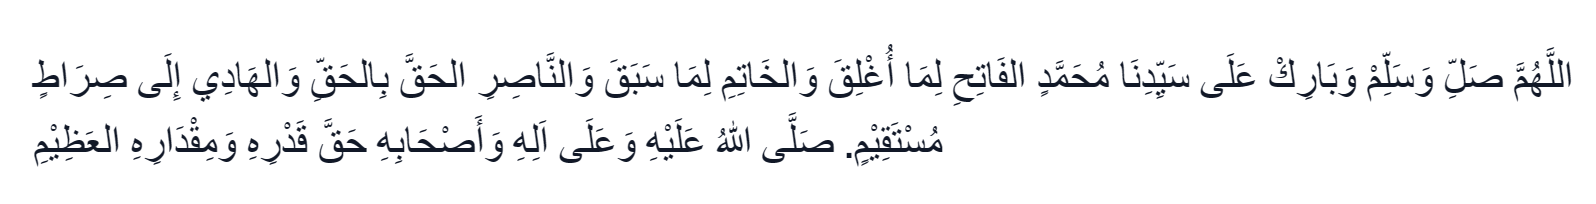 اللَّهُمَّ صَلِّ وَسَلِّمْ وَبَارِكْ عَلَى سَيِّدِنَا مُحَمَّدٍ الفَاتِحِ لِمَا أُغْلِقَ وَالخَاتِمِ لِمَا سَبَقَ وَالنَّاصِرِ الحَقَّ بِالحَقِّ وَالهَادِي إِلَى صِرَاطٍ
مُسْتَقِيْمٍ. صَلَّى اللهُ عَلَيْهِ وَعَلَى اَلِهِ وَأَصْحَابِهِ حَقَّ قَدْرِهِ وَمِقْدَارِهِ العَظِيْمِ